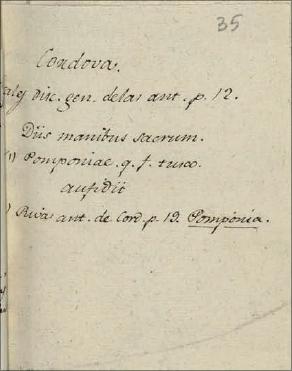 35
Cordova.
ales Disc. gen. de las ant. p. 12.
Diis manibus sacrum.
1) Pomponiae. q. f. tusco.
aufidii
) Rivas ant. de Cord. p. 19. Pomponia.